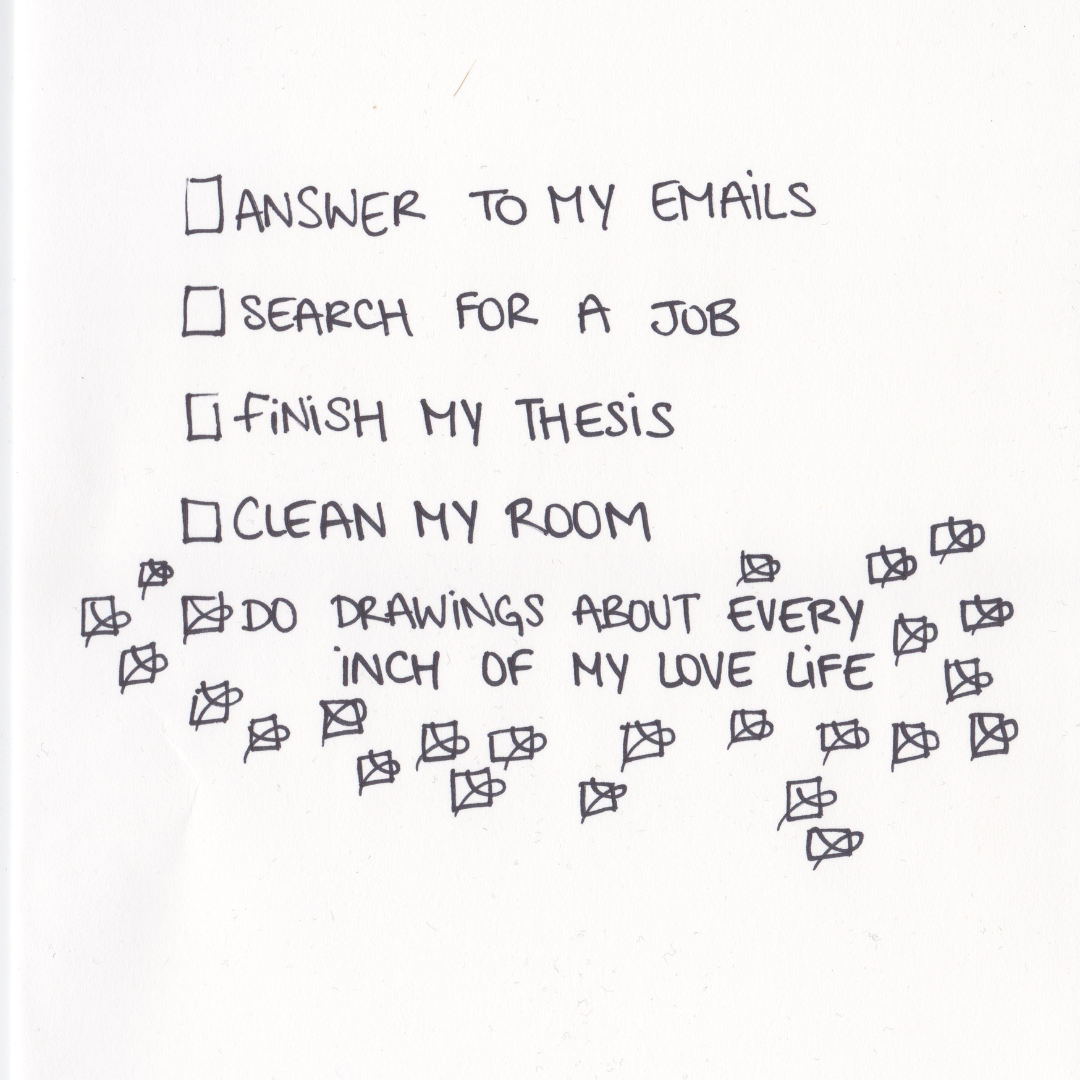 ANSWER TO MY EMAiLS
SEARCH FOR A JOB
FiNiSH MY THESiS
CLEAN MY ROOM
DO DRAWiNGS ABOUT EVERY
iNCH OF MY LOVE LiFE